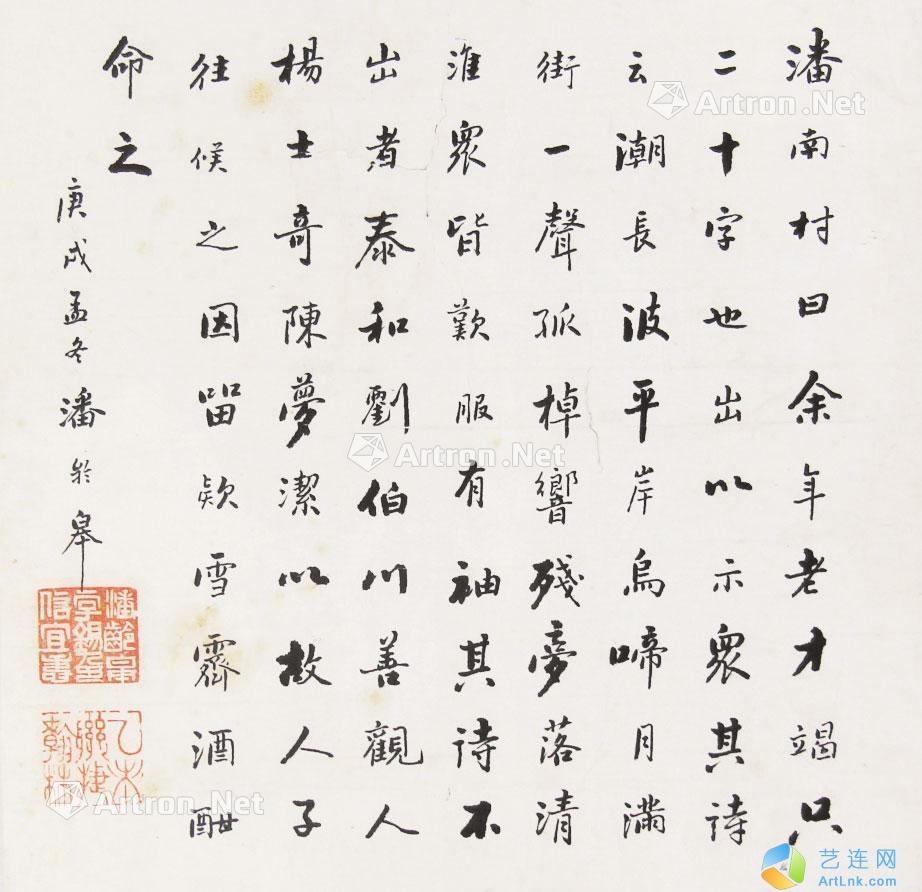 潘南村曰余年老才竭只
二十字也出以示衆其詩
云潮長波平岸烏啼月滿
街一聲孤棹響殘夢落清
淮衆皆歎服有袖其詩不
出者泰和劉伯川善觀人
楊士奇陳夢潔以故人子
往候之因留欵雪霽酒酣
命之
庚戌孟冬潘龄皋
乙未聯捷翰林
Artron.Net
Artron.Net
Artron.Net
艺连网
ArtLnk.com